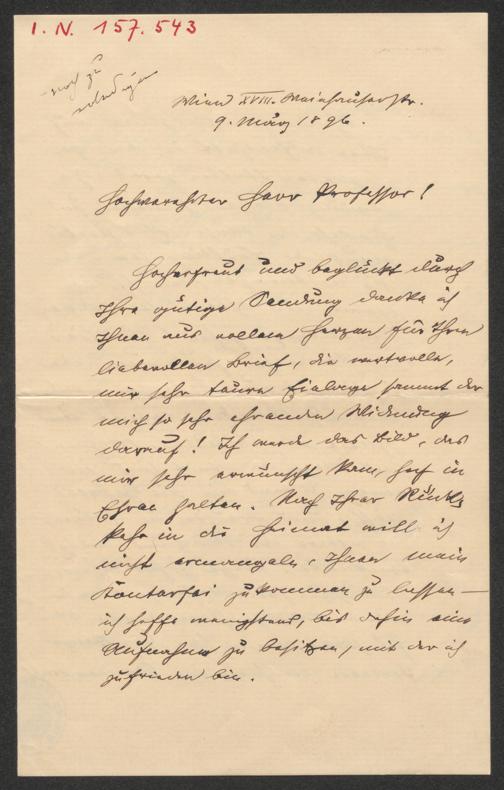 I. N. 157.543
noch zu
Wien XVIII. Weinhauserstr.
9. März 1896.
Hochverehrter Herr Professor!
Hocherfreut und beglückt durch
Ihre gütige Sendung danke ich
Ihnen aus vollem Herzen für Ihren
liebevollen Brief, die wertvolle,
mir sehr teure Einlage sammt der
mich so sehr ehrenden Widmung
darauf! Ich werde das Bild, das
mir sehr erwünscht kam, hoch in
Ehren halten. Nach Ihrer Rück-
kehr in die Heimat will ich
nicht ermangeln, Ihnen mein
Konterfei zukommen zu lassen —
ich hoffe wenigstens, bis dahin eine
Aufnahme zu besitzen, mit der ich
zufrieden bin.